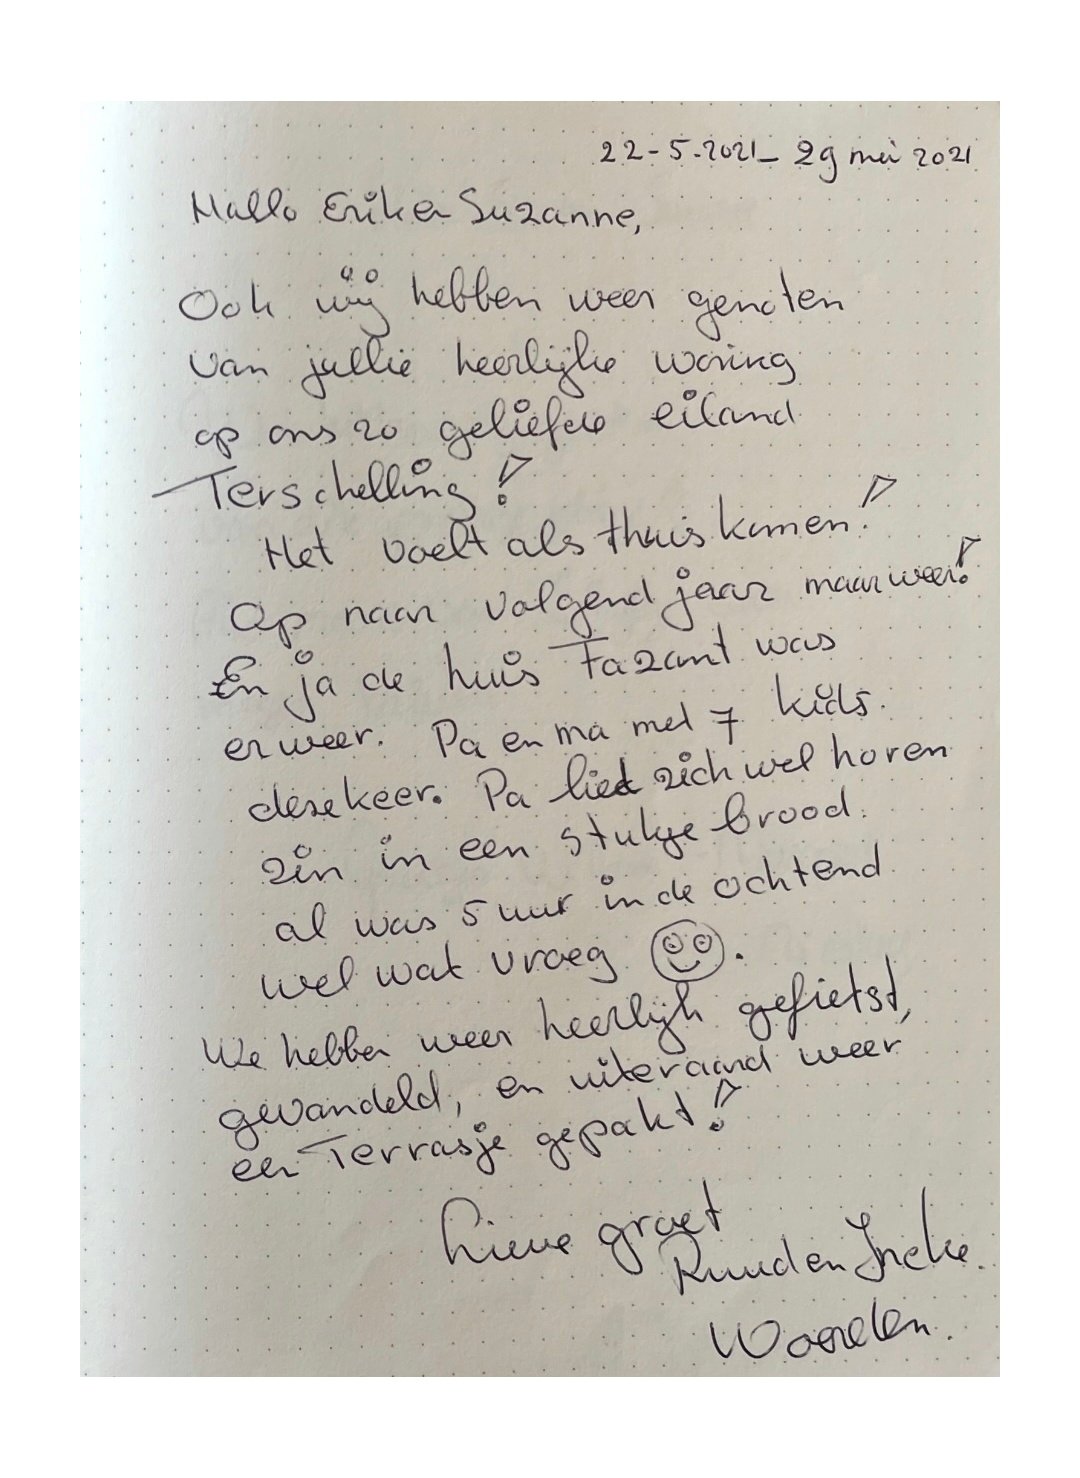 22-5-2021 - 29 mei 2021
Hallo Erik en Suzanne,
Ook wij hebben weer genoten
van jullie heerlijke woning
op ons zo geliefde eiland
Terschelling!
Het voelt als thuis komen!
Op naar volgend jaar maar weer!
En ja de huis Fazant was
er weer. Pa en ma met 7 kids.
deze keer. Pa liet zich wel horen
zin in een stukje brood.
al was 5 uur in de ochtend
wel wat vroeg ☺.
We hebben weer heerlijk gefietst,
gewandeld, en uiteraard weer
een Terrasje gepakt!
Lieve groet
Ruud en Ineke.
Woerden.